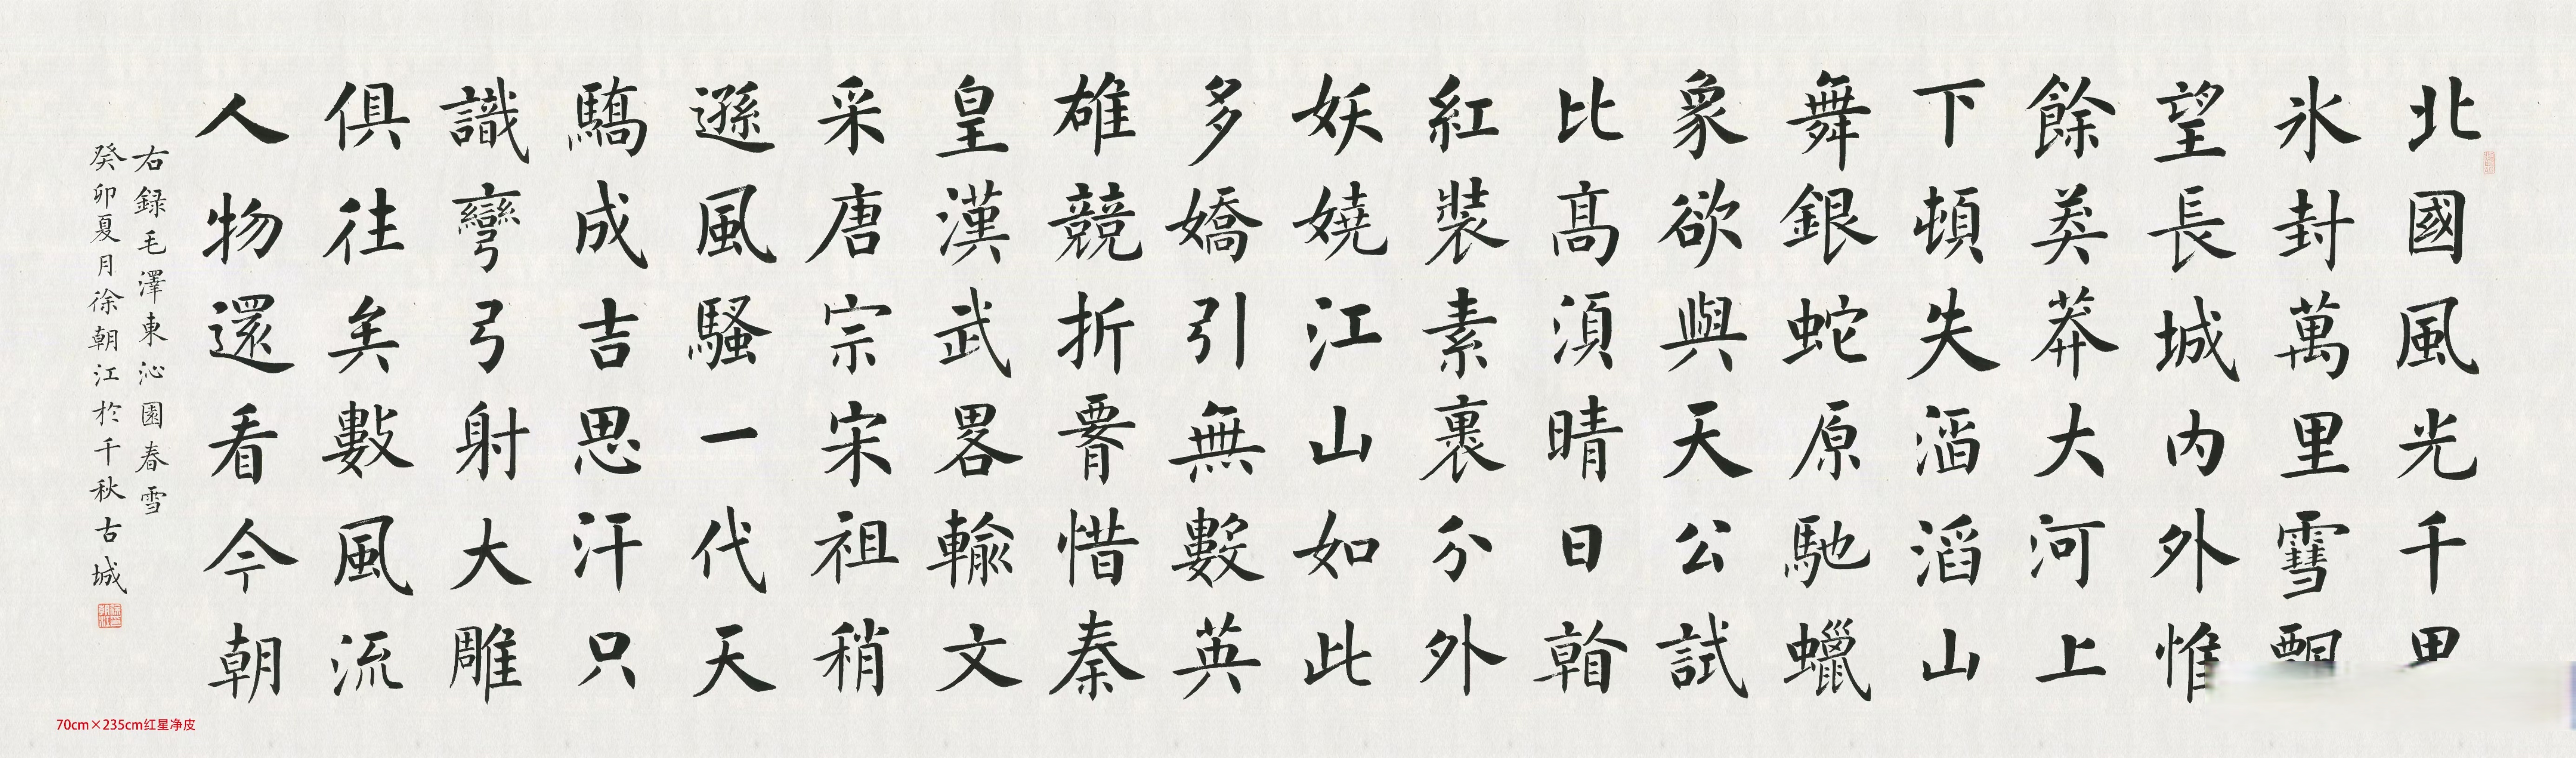 北國風光千
氷封萬里雪
望長城内外惟
餘莽莽大河上
下頓失滔滔山
舞銀蛇原馳蠟
象欲與天公試
比高須晴日看
紅裝素裹分外
妖嬈江山如此
多嬌引無數英
雄競折腰惜秦
皇漢武畧輸文
采唐宗宋祖稍
遜風騷一代天
驕成吉思汗只
識彎弓射大雕
俱往矣數風流
人物還看今朝
右録毛澤東沁園春雪
癸卯夏月徐朝江於千秋古城
70cm×235cm红星净皮